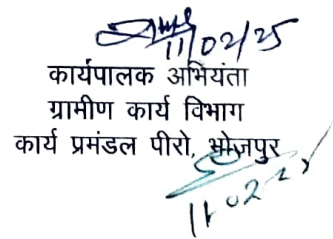 11/02/25
कार्यपालक अभियंता
ग्रामीण कार्य विभाग
कार्य प्रमंडल पीरो, भोजपुर
11.02.25